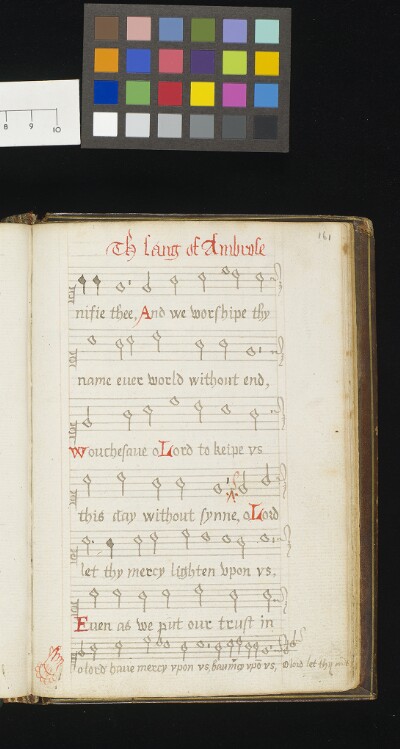 8 9 10
161
Th sang of Ambrose
nifie thee, And we worshipe thy
name euer world without end,
Wouchesaue o Lord to keipe vs
this day without synne, o Lord
let thy mercy lighten vpon vs,
Euen as we put our trust in
o lord haue mercy vpon vs, haue mcy vpō vs, o lord let thy